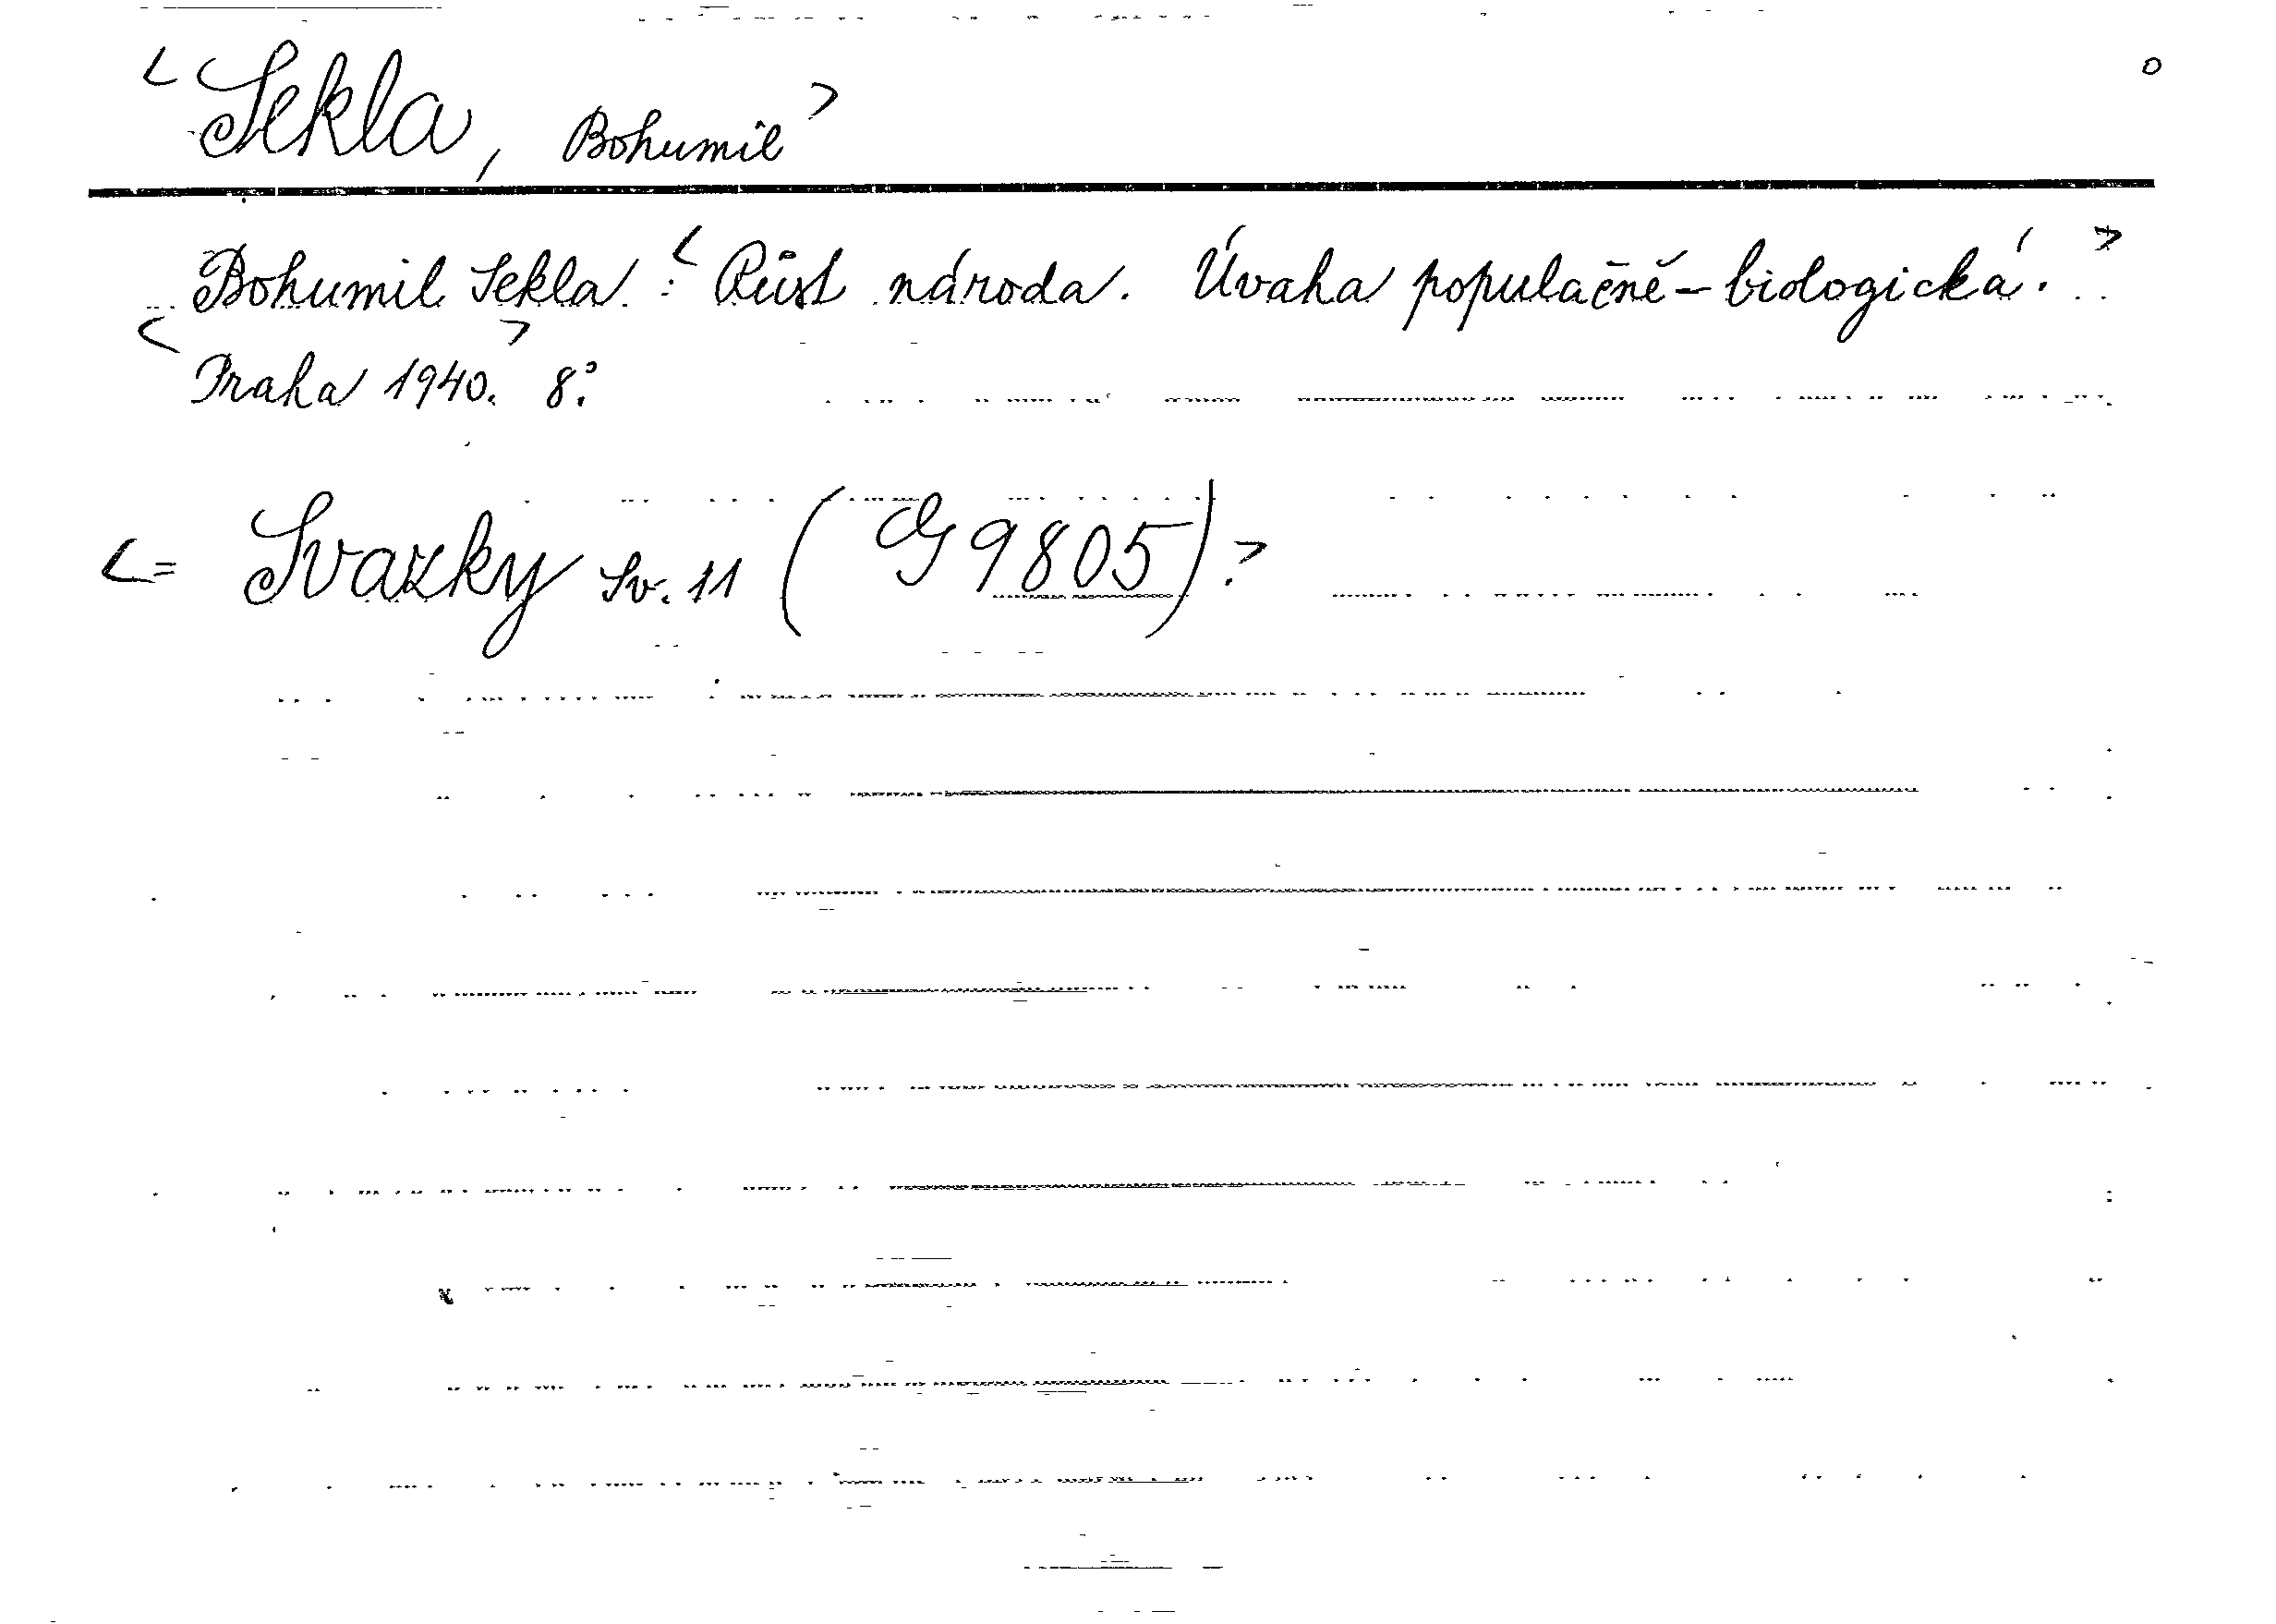 < Sekla, Bohumil > o
Bohumil Sekla: < Růst národa. Úvaha populačně-biologická. >
< Praha 1940. > 8.°
< = Svazky sv. 11 (G 9805). >